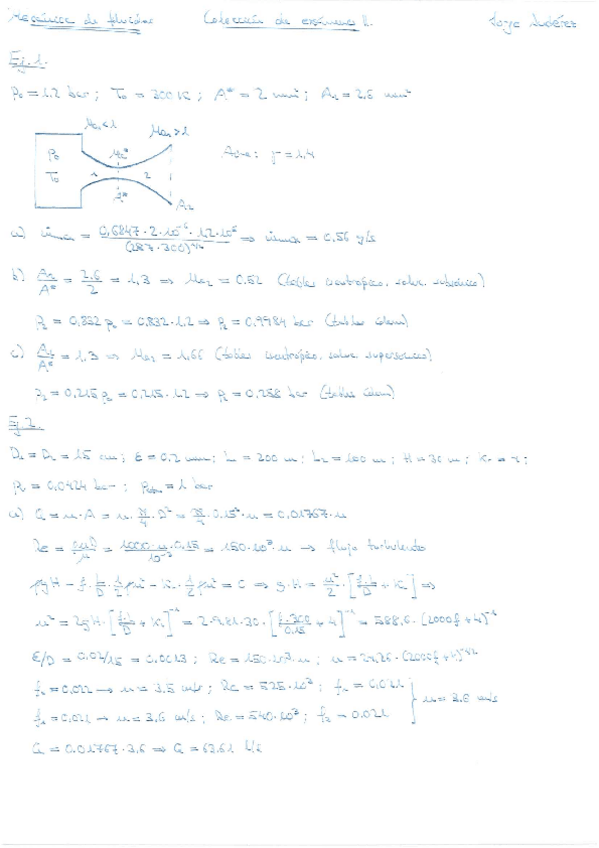 Mecánica de fluidos Colección de exámenes II. Jorge
Ej. 1.
P₀ = 1.2 bar ; T₀ = 300 K ; A* = 2 mm² ; A₂ = 2,6 mm²
Ma₁ < 1 Ma₂ > 1
P₀ Ma* Aire: γ = 1,4
T₀ 1 2
A*
A₂
a) ṁmax = 0,6847 · 2 · 10⁻⁶ · 1.2 · 10⁵ / (287 · 300)^1/2 ⇒ ṁmax = 0,56 g/s
b) A₂/A* = 2.6/2 = 1,3 ⇒ Ma₂ = 0.52 (tablas isentrópico, soluc. subsónica)
P₂ = 0,832 p₀ = 0.832 · 1.2 ⇒ P₂ = 0.9984 bar (tablas ídem)
c) A₂/A* = 1,3 ⇒ Ma₂ = 1,66 (tablas isentrópico, soluc. supersónica)
P₂ = 0,215 p₀ = 0.215 · 1.2 → P₂ = 0.258 bar (tablas ídem)
Ej. 2.
D₁ = D₂ = 15 cm ; ε = 0,2 mm ; L = 200 m ; L₂ = 100 m ; H = 30 m ;
Pv = 0,0424 bar ; Patm = 1 bar
a) Q = u · A = u · π/4 · D² = π/4 · 0.15² · u = 0,01767 · u
Re = ρuD/μ = 1000 · u · 0.15 / 10⁻³ = 150 · 10³ · u → flujo turbulento
ρgH - f · L/D · 1/2 ρu² - K · 1/2 ρu² = 0 ⇒ g · H = u²/2 · [f·L/D + K] ⇒
u² = 2gH · [f·L/D + K]⁻¹ = 2 · 9.81 · 30 · [f·300/0.15 + 4]⁻¹ = 588,6 · (2000f + 4)⁻¹
ε/D = 0,02/15 = 0.0013 ; Re = 150 · 10³ · u ; u = 24.26 · (2000f + 4)^-1/2
f₀ = 0,022 → u = 3.5 m/s ; Re = 525 · 10³ ; f₁ = 0,021
f₁ = 0,021 → u = 3,6 m/s ; Re = 540 · 10³ ; f₂ = 0.021 } u = 3.6 m/s
Q = 0.01767 · 3,6 ⇒ Q = 63.61 l/s